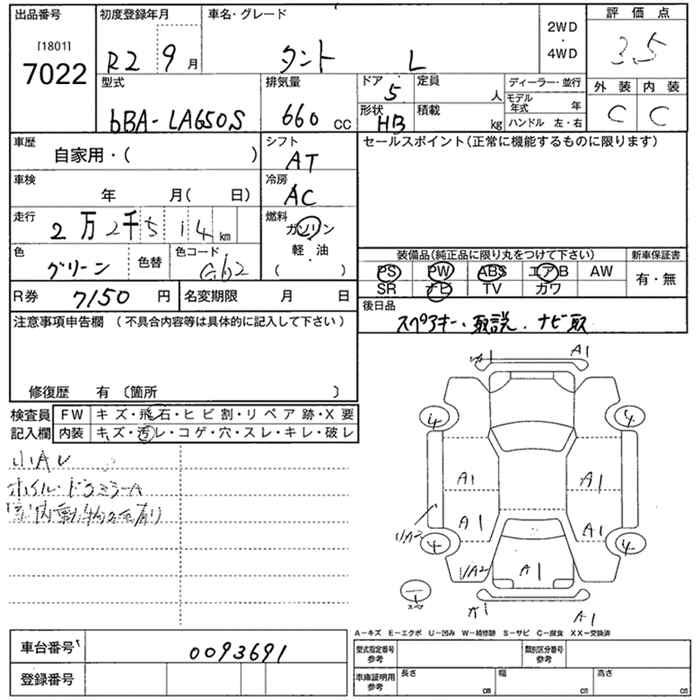 出品番号
[1801]
7022
初度登録年月
R2 9月
車名・グレード
タント L
2WD
・
4WD
評価点
3.5
型式
6BA-LA650S
排気量
660 CC
ドア
5
定員
人
形状
HB
積載
kg
ディーラー・並行
モデル年式 年
ハンドル 左・右
外装 内装
C C
車歴
自家用・( )
シフト
AT
セールスポイント(正常に機能するものに限ります)
車検
年 月( 日)
冷房
AC
走行
2万2千514km
燃料
ガソリン
軽・油
( )
色
グリーン
色替
色コード
G62
装備品(純正品に限り丸をつけて下さい)
新車保証書
PS PW ABS エアB AW
SR ナビ TV カワ
有・無
R券 7150円
名変期限 月 日
後日品
スペアキー、取説、ナビ取
注意事項申告欄(不具合内容等は具体的に記入して下さい)
修復歴 有〔箇所 〕
検査員
記入欄
FW キズ・飛石・ヒビ割・リペア跡・X要
内装 キズ・汚レ・コゲ・穴・スレ・キレ・破レ
小AU
ホイル・ドアミラーA
A1
A1
4 4
A1 A1
A1 A1
U/A2
4 4
U/A2 A1
スペア
A1 A1
A-キズ E-エクボ U-凹み W-補修跡 S-サビ C-腐食 XX-交換済
車台番号
0093691
登録番号
型式指定番号
参考
類別区分番号
参考
車庫証明用
参考
長さ cm
幅 cm
高さ cm